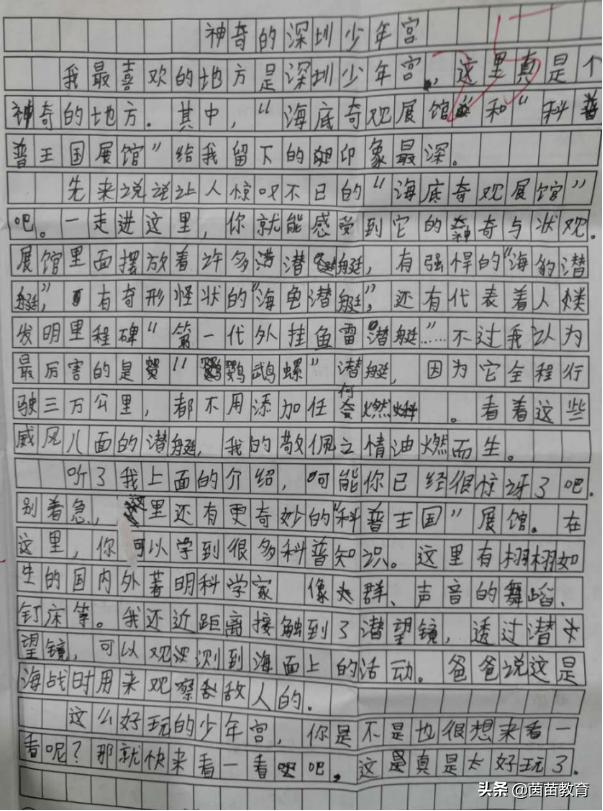 神奇的深圳少年宫
25
我最喜欢的地方是深圳少年宫,这里真是个
神奇的地方.其中,“海底奇观展馆”和“科普
普王国展馆”给我留下的印象最深。
先来说说让人惊叹不已的“海底奇观展馆”
吧。一走进这里,你就能感受到它的神奇与状观.
展馆里面摆放着许多潜艇,有强悍的“海豹潜
艇”,有奇形怪状的“海龟潜艇”,还有代表着人类
发明里程碑“第一代外挂鱼雷潜艇”……不过我认为
最厉害的是“鹦鹉螺”潜艇,因为它全程行
驶三万公里,都不用添加任何燃料。看着这些
威风八面的潜艇,我的敬佩之情油燃而生.
听了我上面的介绍,可能你已经很惊讶了吧.
别着急,这里还有更奇妙的“科普王国”展馆.在
这里,你可以学到很多科普知识。这里有栩栩如
生的国内外著明科学家像群、声音的舞蹈、
钉床等。我还近距离接触到了潜望镜,透过潜
望镜,可以观测到海面上的活动。爸爸说这是
海战时用来观察敌人的.
这么好玩的少年宫,你是不是也很想来看一
看呢?那就快来看一看吧,这是真是太好玩了.
头条@茵苗教育